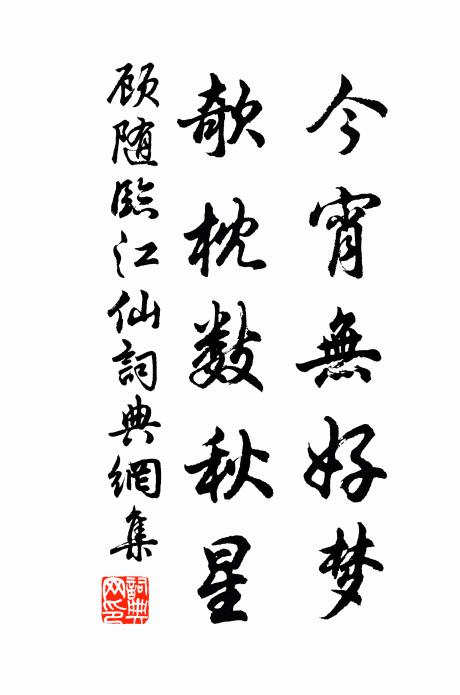 今宵無好梦
欹枕数秋星
顾随臨江仙詞典網集
詞典网印